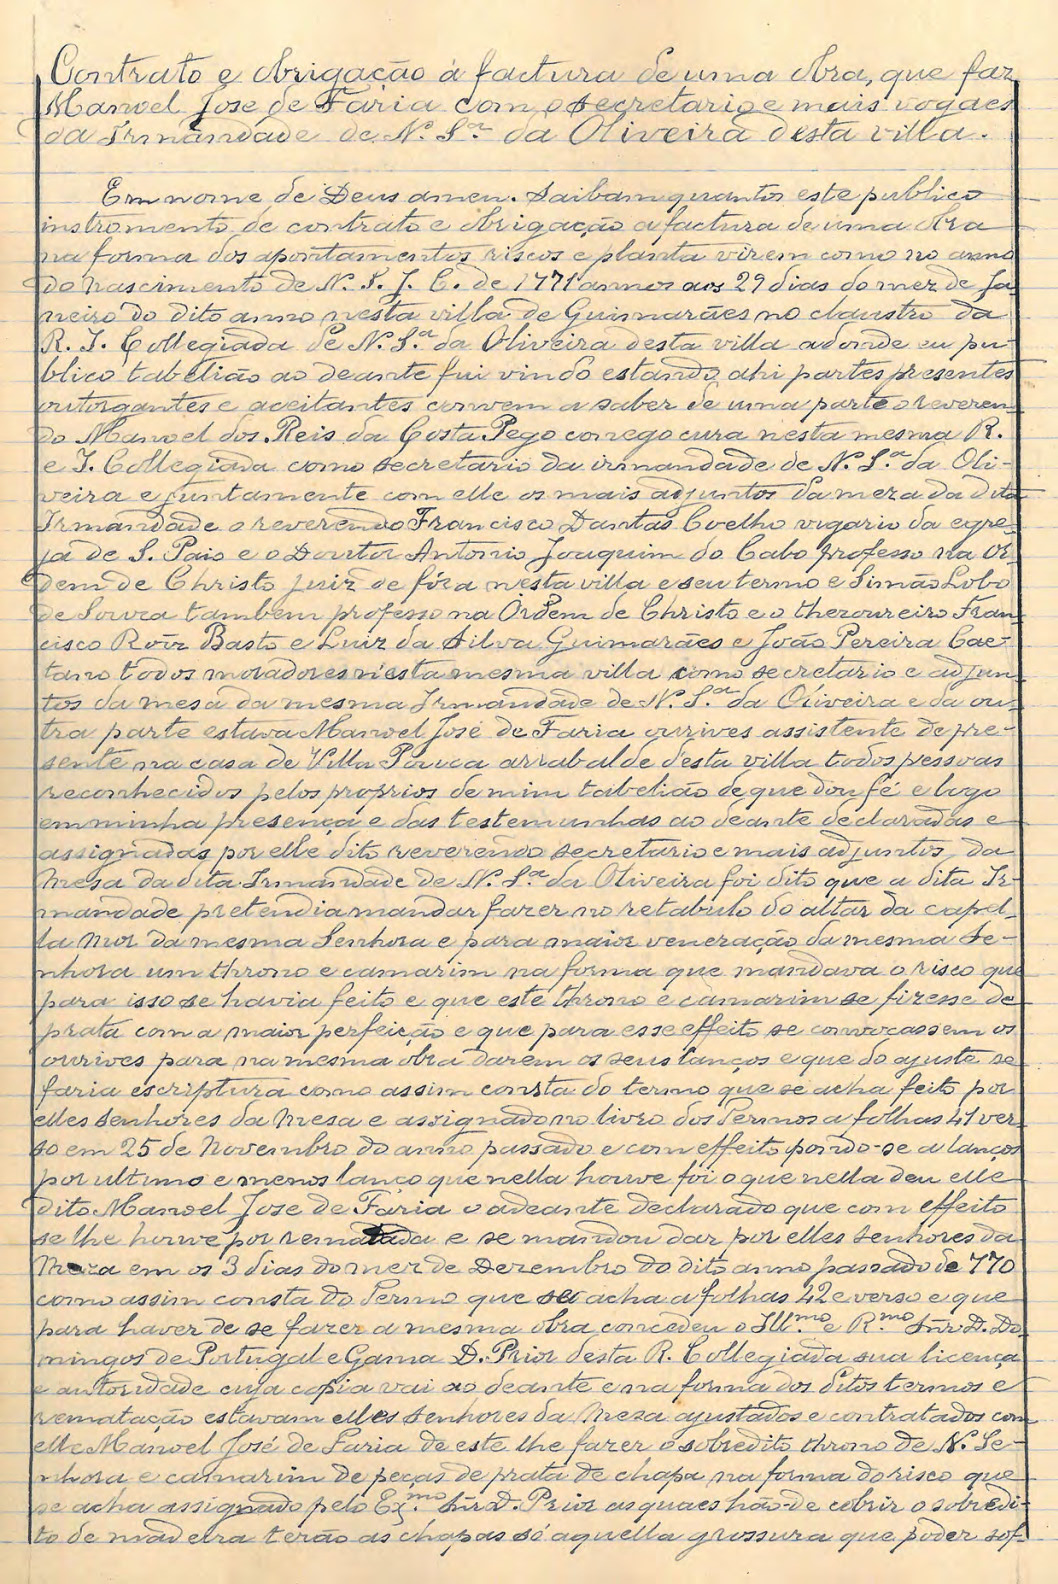 Contrato e obrigação á factura de uma obra, que faz
Manoel José de Faria com o secretario e mais vogaes
da Irmandade de N.ª S.ra da Oliveira desta villa.
Em nome de Deus amen. Saibam quantos este publico
instromento de contrato e obrigação a factura de uma obra
na forma dos apontamentos riscos e planta virem como no anno
do nascimento de N. S. J. C. de 1771 annos aos 29 dias do mez de Ja-
neiro do dito anno nesta villa de Guimarães no claustro da
R. I. Collegiada de N. S.ª da Oliveira desta villa adonde eu pu-
blico tabelião ao deante fui vindo estando ahi partes presentes
outorgantes e aceitantes convem a saber de uma parte o reveren-
do Manoel dos Reis da Costa Pego conego cura nesta mesma R.
e I. Collegiada como secretario da irmandade de N. S.ª da Oli-
veira e juntamente com elle os mais adjuntos da meza da dita
Irmandade o reverendo Francisco Dantas Coelho vigario da egre-
ja de S. Paio e o Doutor Antonio Joaquim do Cabo professo na Or-
dem de Christo juiz de fóra nesta villa e seu termo e Simão Lobo
de Souza tambem professo na Ordem de Christo e o thezoureiro Fran-
cisco Roiz Basto e Luiz da Silva Guimarães e João Pereira Cae-
tano todos moradores n'esta mesma villa como secretario e adjun-
tos da mesa da mesma Irmandade de N. S.ª da Oliveira e da ou-
tra parte estava Manoel José de Faria ourives assistente de pre-
sente na casa de Villa Pouca arrabalde desta villa todos pessoas
reconhecidos pelos proprios de mim tabelião de que dou fé e logo
em minha presença e das testemunhas ao deante declaradas e
assignadas por elle dito reverendo secretario e mais adjuntos da
Mesa da dita Irmandade de N. S.ª da Oliveira foi dito que a dita Ir-
mandade pretendia mandar fazer no retabulo do altar da capel-
la Mor da mesma Senhora e para maior veneração da mesma Se-
nhora um throno e camarim na forma que mandava o risco que
para isso se havia feito e que este throno e camarim se fizesse de
prata com a maior perfeição e que para esse effeito se convocassem os
ourives para na mesma obra darem os seus lanços e que do ajuste se
faria escriptura como assim consta do termo que se acha feito por
elles senhores da Mesa e assignado no livro dos Termos a folhas 41 ver-
so em 25 de Novembro do anno passado e com effeito pondo-se a lanços
por ultimo e menos lanço que nella houve foi o que nella deu elle
dito Manoel José de Faria o adeante declarado que com effeito
se lhe houve por rematada e se mandou dar por elles senhores da
Meza em os 3 dias do mez de Dezembro do dito anno passado de 770
como assim consta do Termo que se acha a folhas 42 e verso e que
para haver de se fazer a mesma obra concedeu o Ill.mo e R.mo Snr D. Do-
mingos de Portugal e Gama D. Prior desta R. Collegiada sua licença
e autoridade cuja copia vai ao deante e na forma dos ditos termos e
rematação estavam elles senhores da Meza ajustados e contratados com
elle Manoel José de Faria de este lhe fazer o sobredito throno de N. Se-
nhora e camarim de peças de prata de chapa na forma do risco que
se acha assignado pelo Ex.mo Snr D. Prior as quaes hão-de cobrir o sobredi-
to de madeira terão as chapas só aquella grossura que poder sof-